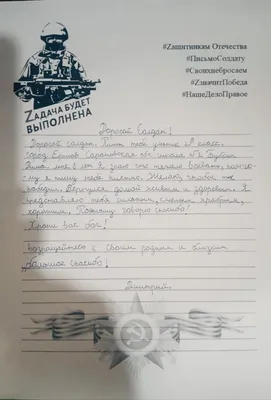 #Zащитникам Отечества
#ПисьмоСолдату
#Своихнебросаем
#ZначитПобеда
#НашеДелоПравое
ZАДАЧА БУДЕТ
ВЫПОЛНЕНА
Дорогой Солдат!
Дорогой солдат. Пишет тебе ученик 1А класс.
город Ершов Саратовская обл школа №2
Дима. мне 8 лет. Я знаю что нельзя воевать,
ну я пишу тебе письмо. Желаю чтобы ты
победил. Вернулся домой живым и здоровым. Я
представляю тебя сильным, смелым, храбрым,
хорошим. Поэтому говорю спасибо!
Храни вас бог!
возвращайтесь к своим родным и близким
большое спасибо!
Дмитрий.